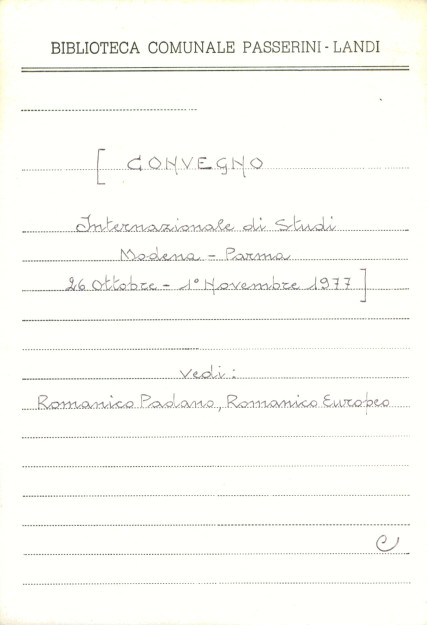 BIBLIOTECA COMUNALE PASSERINI-LANDI
[ CONVEGNO
Internazionale di Studi
Modena - Parma
26 Ottobre - 1° Novembre 1977 ]
vedi:
Romanico Padano, Romanico Europeo
C